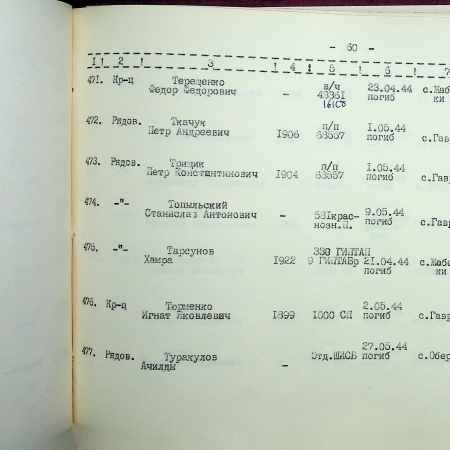 - 60 -
1! 2 ! 3 ! 4 ! 5 ! 6 ! 7
471. Кр-ц Терещенко в/ч 23.04.44 с.Жаб
Федор Федорович - 43351 погиб ки
161СО
472. Рядов. Ткачук п/п 1.05.44
Петр Андреевич 1906 63557 погиб с.Гав
473. Рядов. Трищик п/п 1.05.44
Петр Константинович 1904 63557 погиб с.Гав
474. -"- Топыльский 9.05.44
Станислав Антонович - 531крас- погиб с.Гав
нозн.П.
475. -"- Тарсунов 336 ГИПТАП
Хамра 1922 9 ГИПТАБр 21.04.44 с.Жаб
погиб ки
476. Кр-ц Тюрменко 2.05.44
Игнат Яковлевич 1899 1000 СП погиб с.Гав
477. Рядов. Туракулов 27.05.44
Отд.ШИСБ погиб с.Обер
Ачилды -